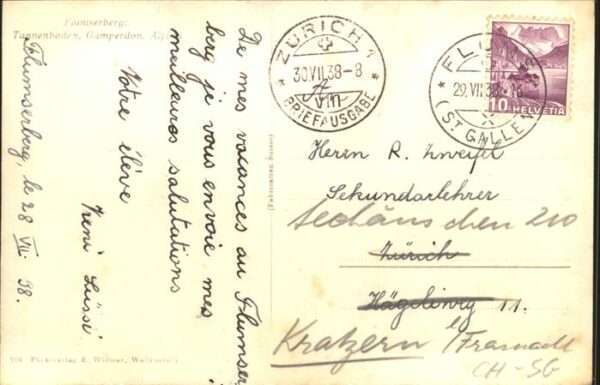 Flumserberg:
Tannenboden, Gamperdon, Alp
Flumserberg, le 28 VII 38.
De mes vacances au Flumser-
berg je vous envoie mes
meilleures salutations
Votre élève
Vreni Lüssi
ZÜRICH 1
30.VII.38-8
VIII
BRIEFAUSGABE
FLUMS
29.VII.38
(ST. GALLEN)
10 HELVETIA
Herrn R. Zweifel
Sekundarlehrer
210
Zürich
11.
Kratzern b/
CH-SG